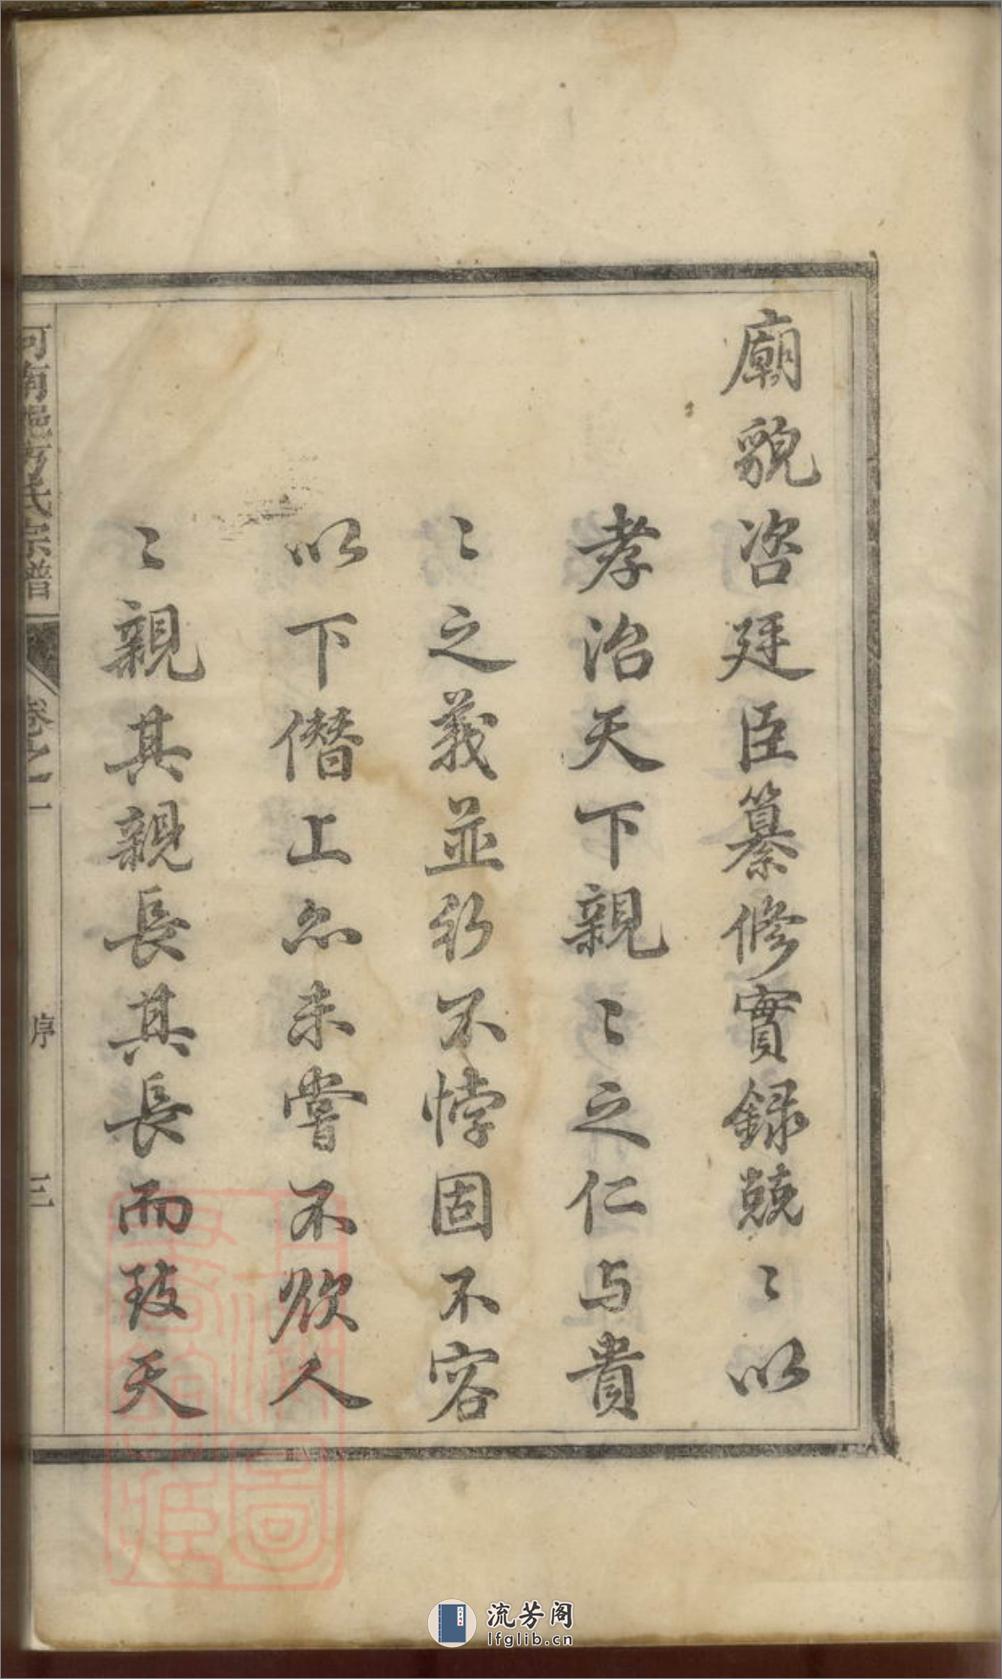 廟貌咨廷臣纂修實録兢〻以
孝治天下親〻之仁与貴
〻之義並行不悖固不容
以下僭上亦未嘗不欲人
〻親其親長其長而致天
河南方氏宗譜
卷之一
序
三
上海圖書館藏
流芳阁
lfglib.cn